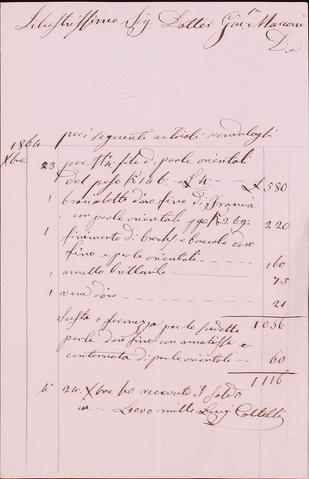 Illustrissimo Sig Dotter Gio. Marconi
D.a
per i seguenti articoli vendutogli
1864
Xbre 23 per N. 4 file di perle orientali
del peso K 146 a £ 4 — £ 580
1 braccialetto d'oro fino di Francia
con perle orientali 220
1 finimento di broch. e boccole d'oro
fino e perle orientali — 160
1 anello brillante — 75
1 vera d'oro — 21
1056
Susta o fermezza per le sudette
perle d'oro fino con amatista e
contornata di perle orientali — 60
1116
24 Xbre ho ricevuto il saldo
in £ 1000 mille Luigi